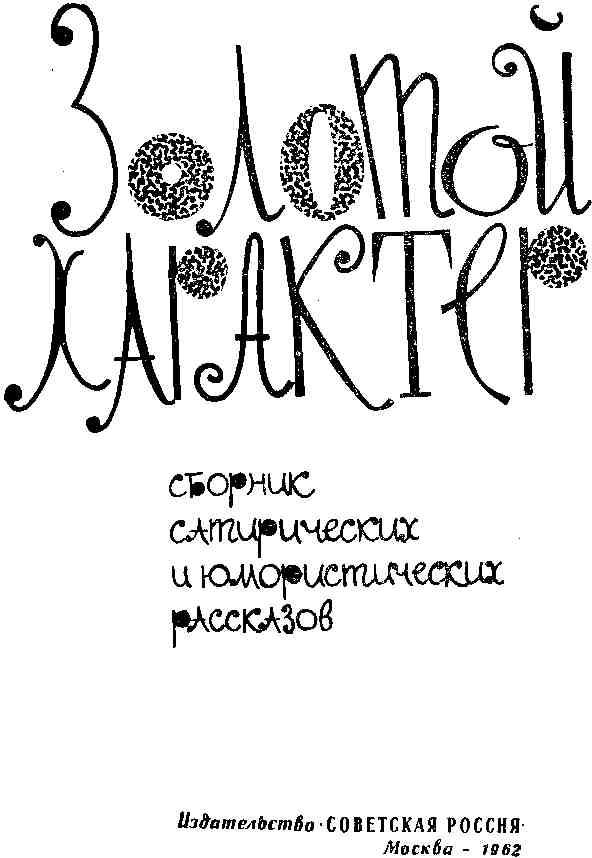 Золотой
характер
сборник
сатирических
и юмористических
рассказов
Издательство · СОВЕТСКАЯ РОССИЯ ·
Москва – 1962